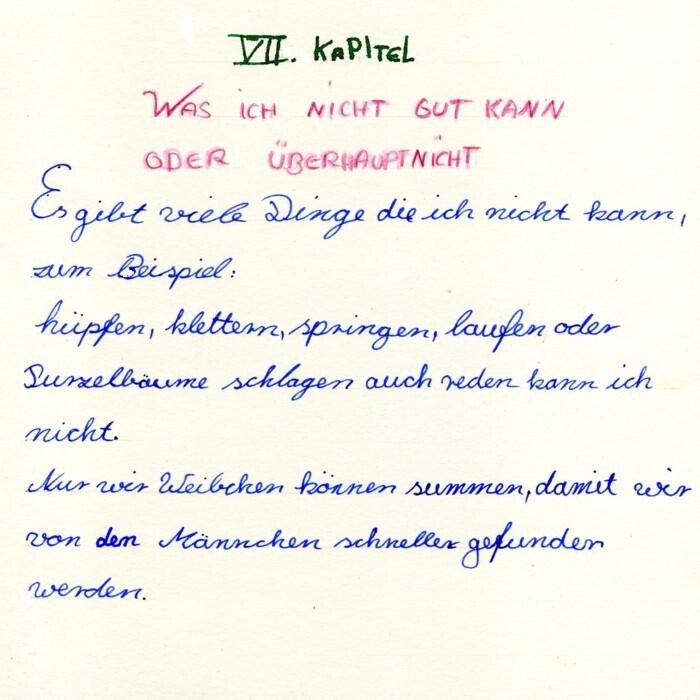 VII. KAPITEL
WAS ICH NICHT GUT KANN
ODER ÜBERHAUPTNICHT
Es gibt viele Dinge die ich nicht kann,
zum Beispiel:
hüpfen, klettern, springen, laufen oder
Purzelbäume schlagen auch reden kann ich
nicht.
Nur wir Weibchen können summen, damit wir
von den Männchen schneller gefunden
werden.